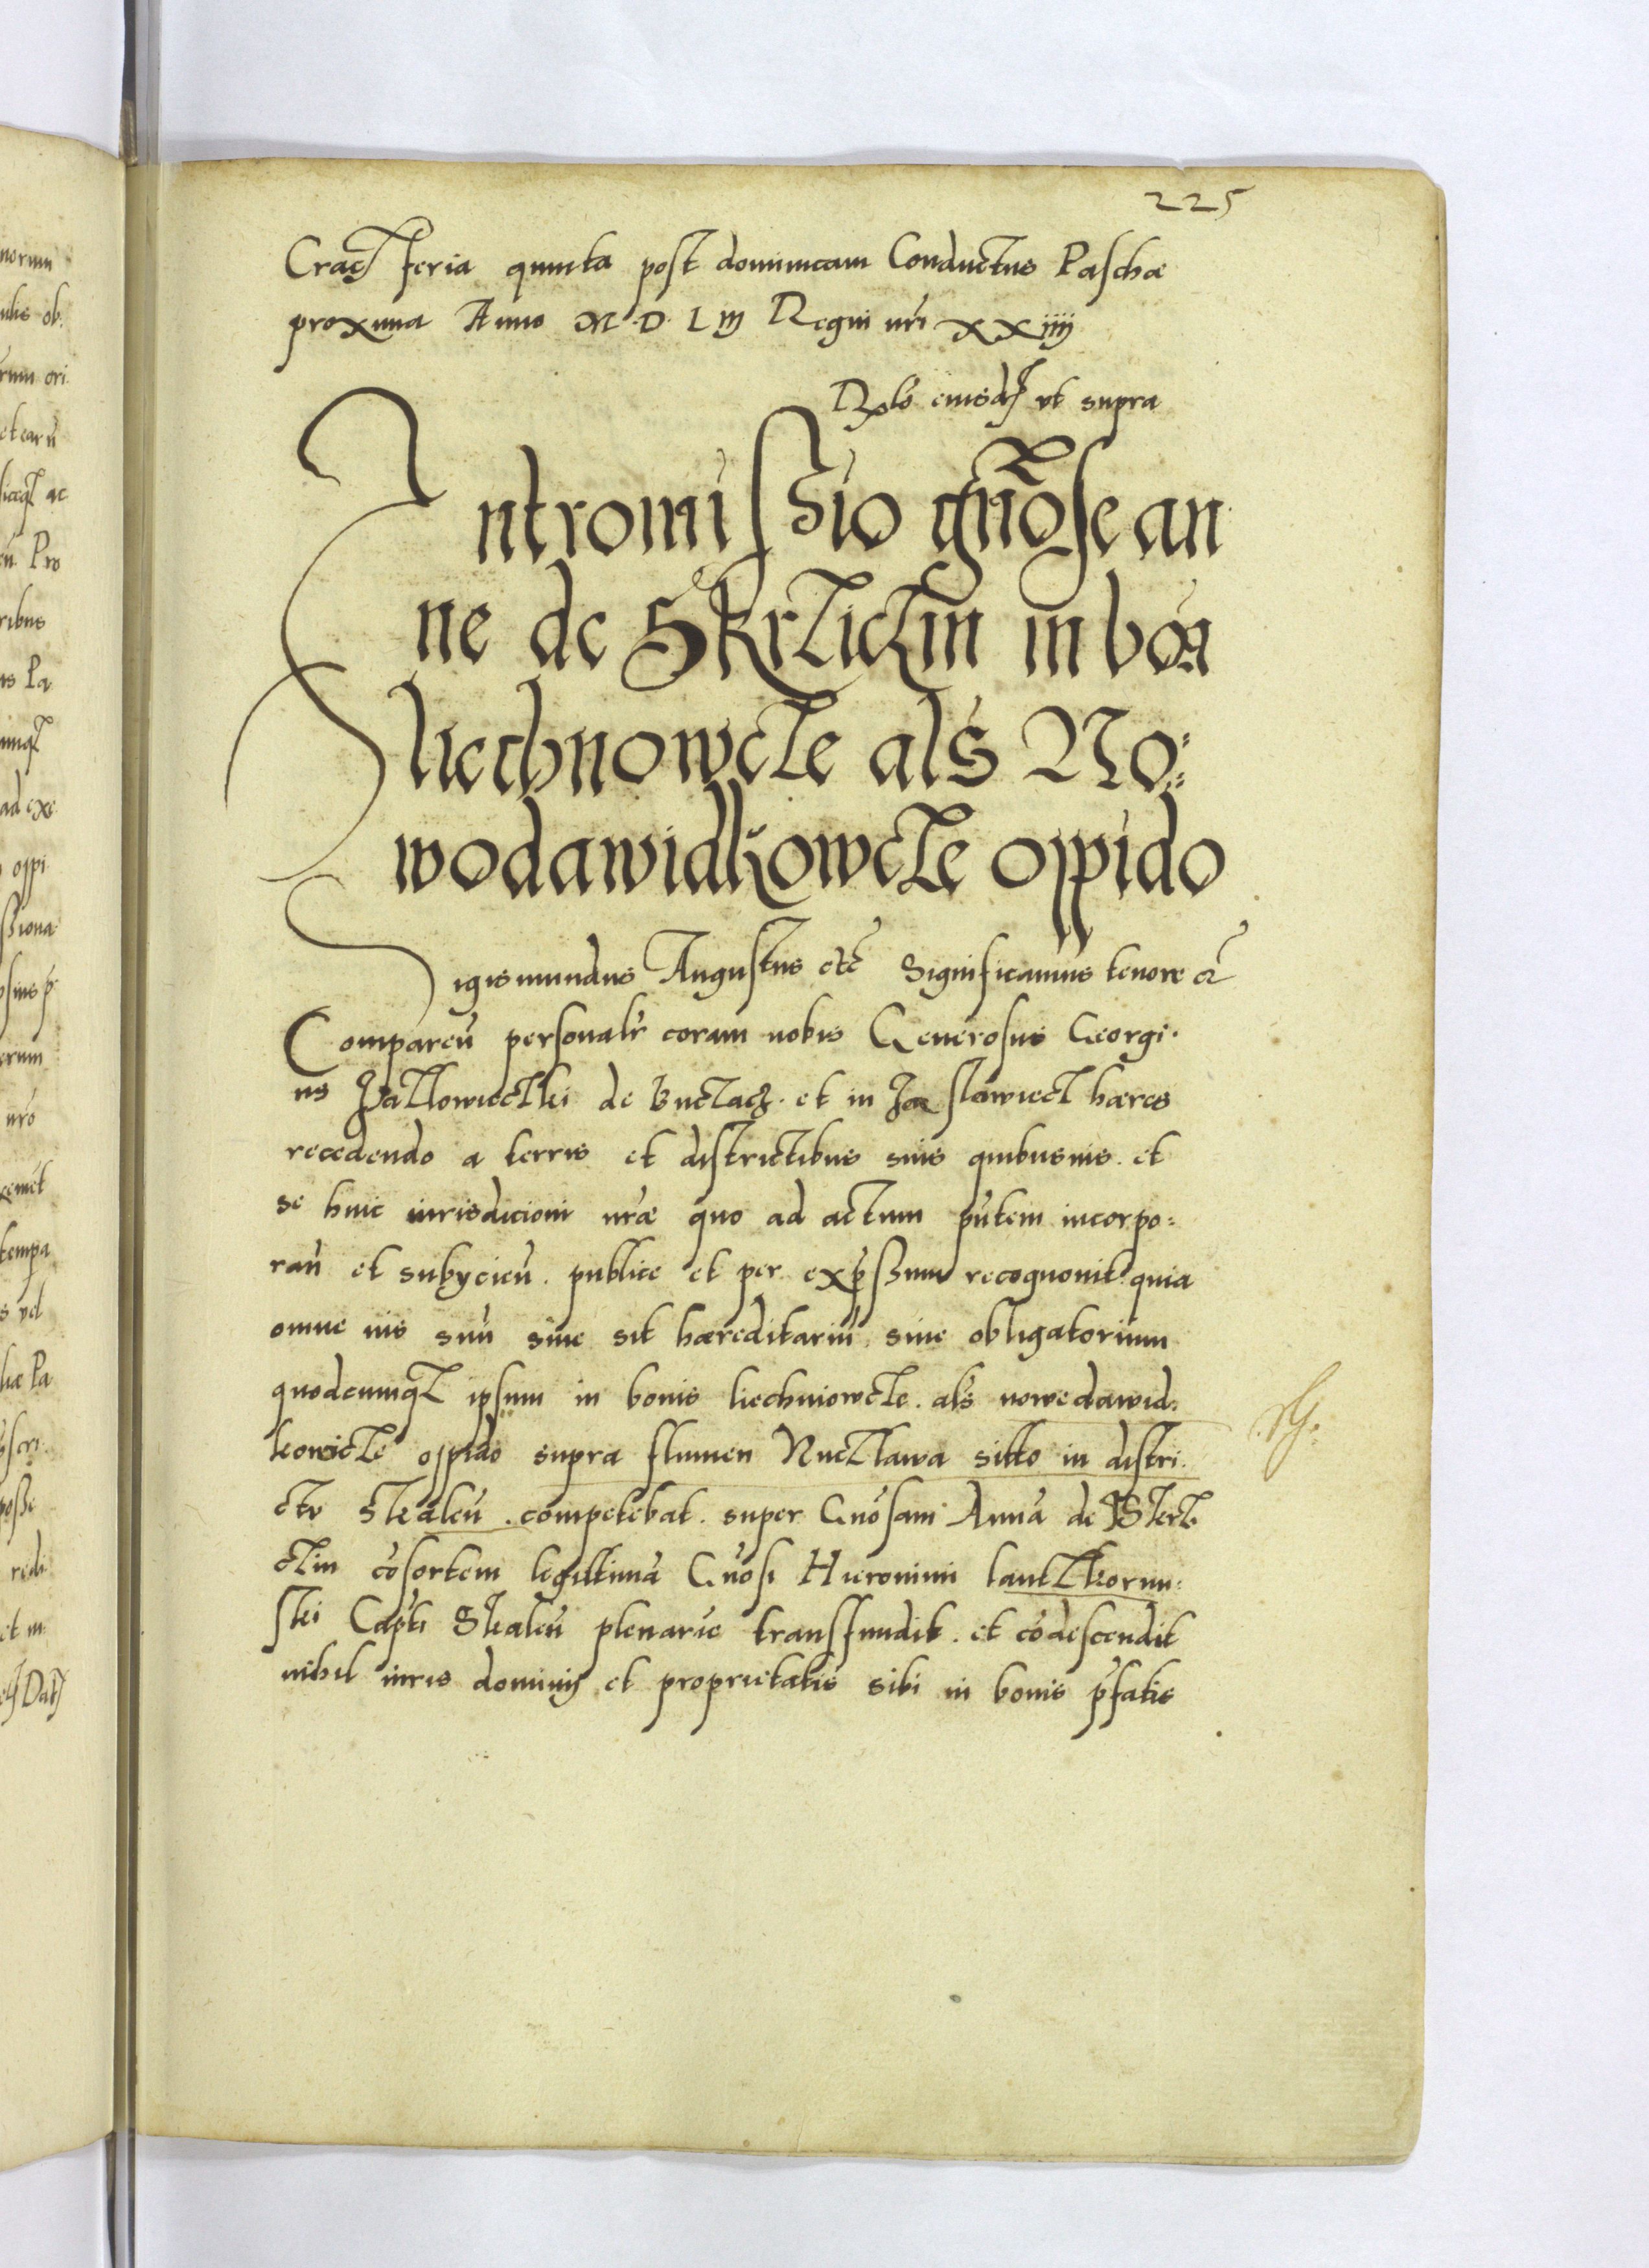 225
Crac feria quinta post dominicam Conductus Paschæ
proxima Anno M.D.LIII Regni nri XXIIII
Rlo eiusdē ut supra
Intromissio gnōse an
ne de Skrzliczin in boa
liechnowcze als No=
wodawidkowcze oppido
Sigismundus Augustus etc Significamus tenore
Compareñ personalr coram nobis Generosus Georgi
us Jazlowieczki de Buczacz. et in Jaslowiecz hæres
recedendo a terris et districtibus suis quibusuis. et
se huic iurisdicioni nræ quo ad actum pñtem incorpo=
rañ et subycieñ. publice et per expssum recognouit. quia
omne ius suū siue sit hæreditariū siue obligatorium
quodcumqz ipsum in bonis liechniowcze. als nowedawid=
kowicze oppido supra flumen Nieczlawa sitto in distri
ctu Skaleñ. competebat. super Gnōsam Annā de
czin cōsortem legittimā Gnōsi Hieronimi lanczkorun
ski Capti Skaleñ plenarie transfundit. et cōdescendit
nihil iuris dominij et proprietatis sibi in bonis pfatis
norum
ulis ob.
rum ori
et earū
ac
Pro
ribus
is Pa
umqz
ad exe
oppi
ssiona
erum
nro
tempa
s vel
liæ Pa
posse
redi
et in
Dat